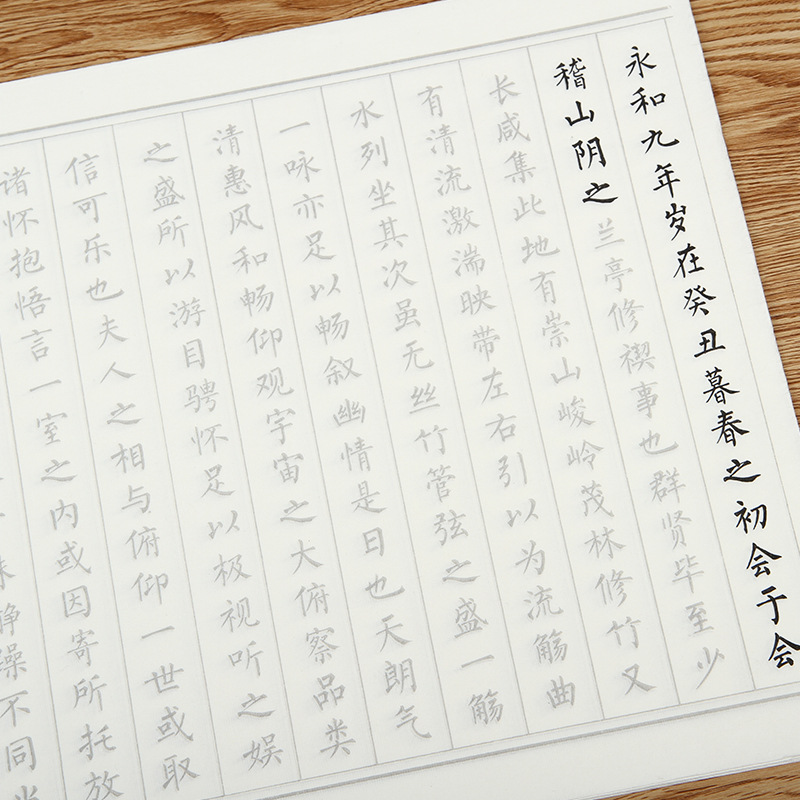 永和九年岁在癸丑暮春之初会于会
稽山阴之兰亭修禊事也群贤毕至少
长咸集此地有崇山峻岭茂林修竹又
有清流激湍映带左右引以为流觞曲
水列坐其次虽无丝竹管弦之盛一觞
一咏亦足以畅叙幽情是日也天朗气
清惠风和畅仰观宇宙之大俯察品类
之盛所以游目骋怀足以极视听之娱
信可乐也夫人之相与俯仰一世或取
诸怀抱悟言一室之内或因寄所托放
静躁不同